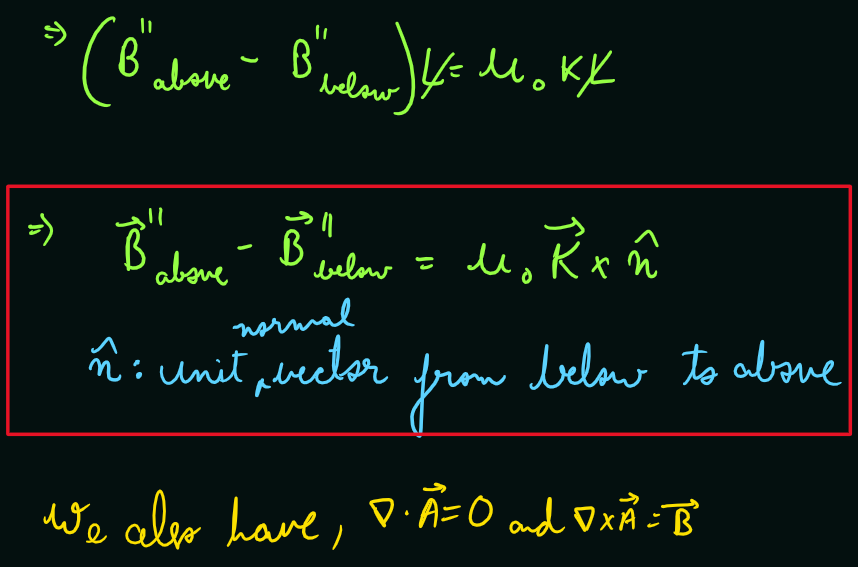 ⇒ (B"above - B"below) l = μ₀ K l
⇒ B⃗"above - B⃗"below = μ₀ K⃗ × n̂
normal
n̂ : unit ‸ vector from below to above
We also have, ∇·A⃗=0 and ∇×A⃗=B⃗